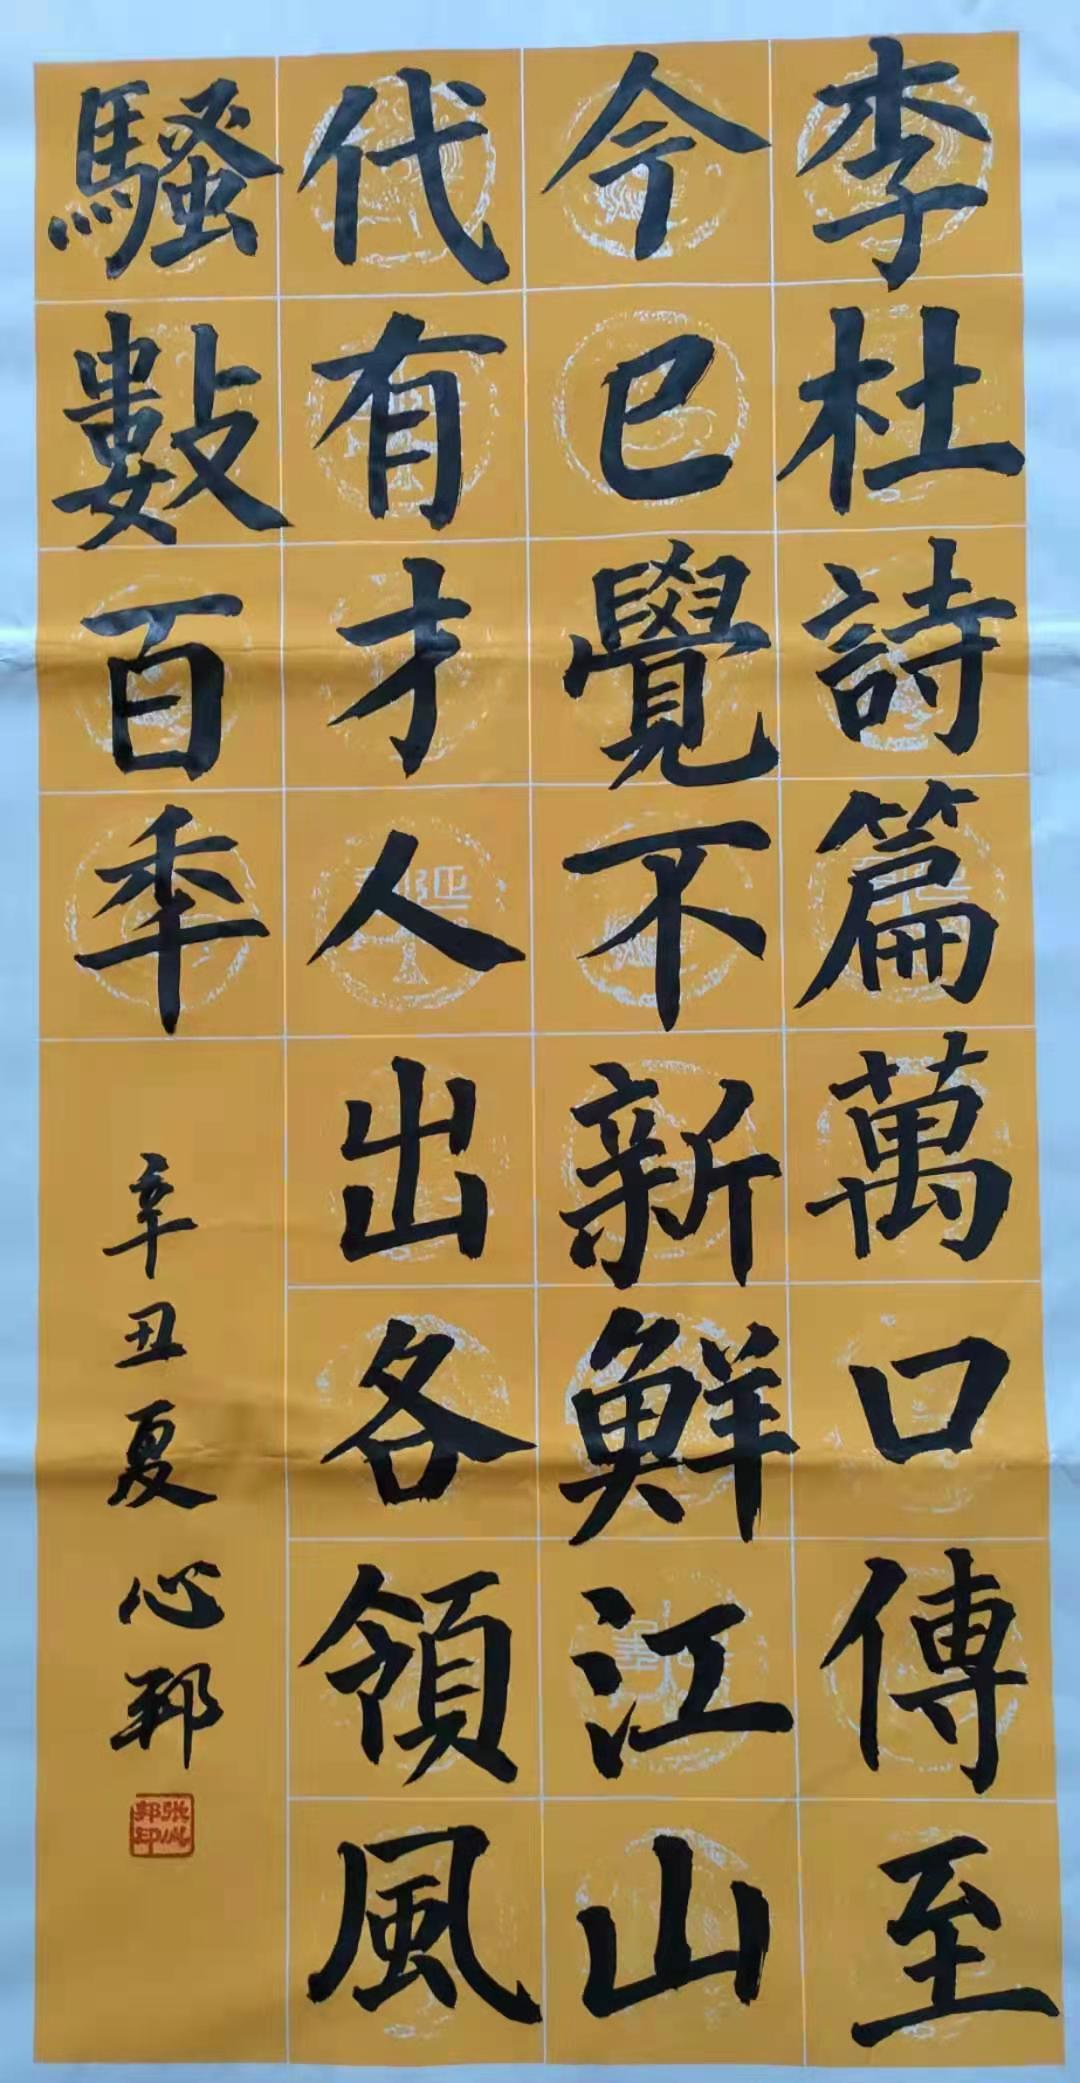 李杜詩篇萬口傳至
今已覺不新鮮江山
代有才人出各領風
騷數百年
辛丑夏心邦
張心邦印